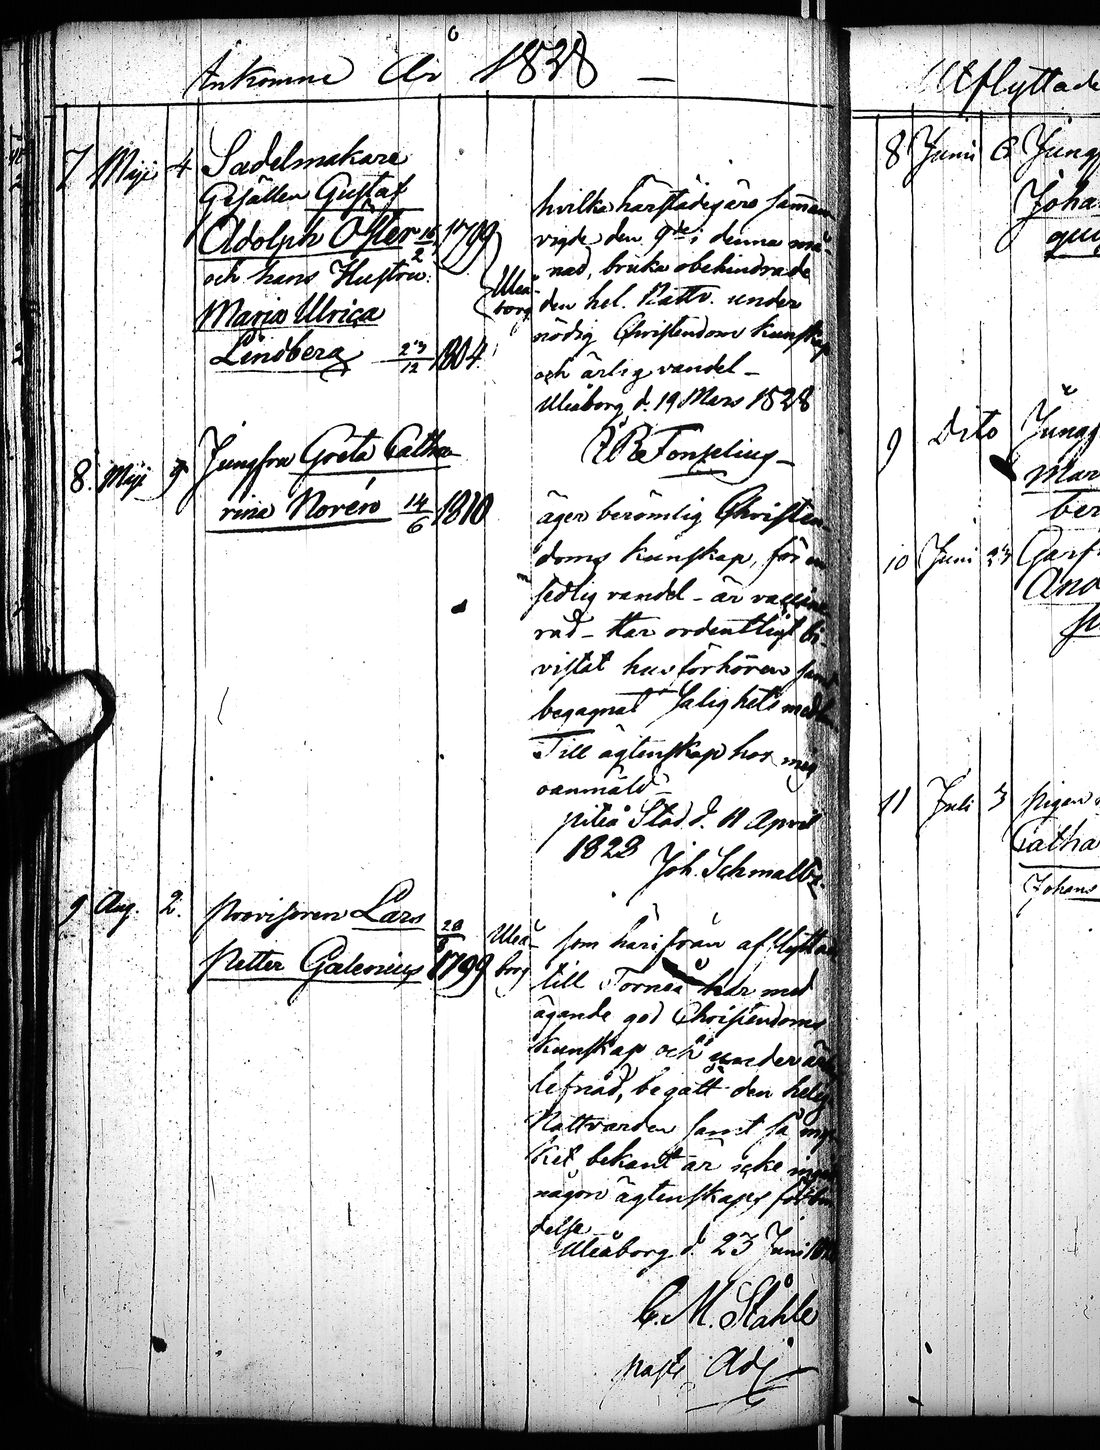 Ankomne År 1828
7 Maji 4 Sadelmakare
Gesällen Gustaf
Adolph Öster 1799
och hans Hustru
Maria Ulrica
Lindberg 23/12 1804
Uleå
borg
hvilka härstädes äro samman
vigde den 9de i denna må-
nad, bruka obehindrade
den hel. Nattv. under
nödig Christendoms kunskap
och ärlig vandel -
Uleåborg d. 19 Mars 1828
8 Maji Jungfru Greta Catha
rina Norén 14/6 1810
äger berömlig Christen-
doms kunskap, för en
sedlig vandel - är vaccine
rad - Har ordentligt bi-
vistat husförhören samt
begagnat Salighets medlen
Till ägtenskap hos mig
oanmäld -
Piteå Stad d. 11 April
1828
Joh. Schmaltz
9 Aug. 2. Provisoren Lars
Petter Galenius 1799
Uleå-
borg
som härifrån afflyttar
till Torneå har med
ägande god Christendoms
kunskap och under ärlig
lefnad, begått den helige
Nattvarden samt så myc
ket bekant är icke ingått
någon ägtenskaps förbin
delse
Uleåborg d. 23 Juni
C. M. Ståhle
Past. Adj
Utflyttade
8 Junii 6 Jungf
Joha
9 Dito Jungf
Mar
ber
10 Juni 23
And
11 Juli 3 Pigan
Catha
Johans